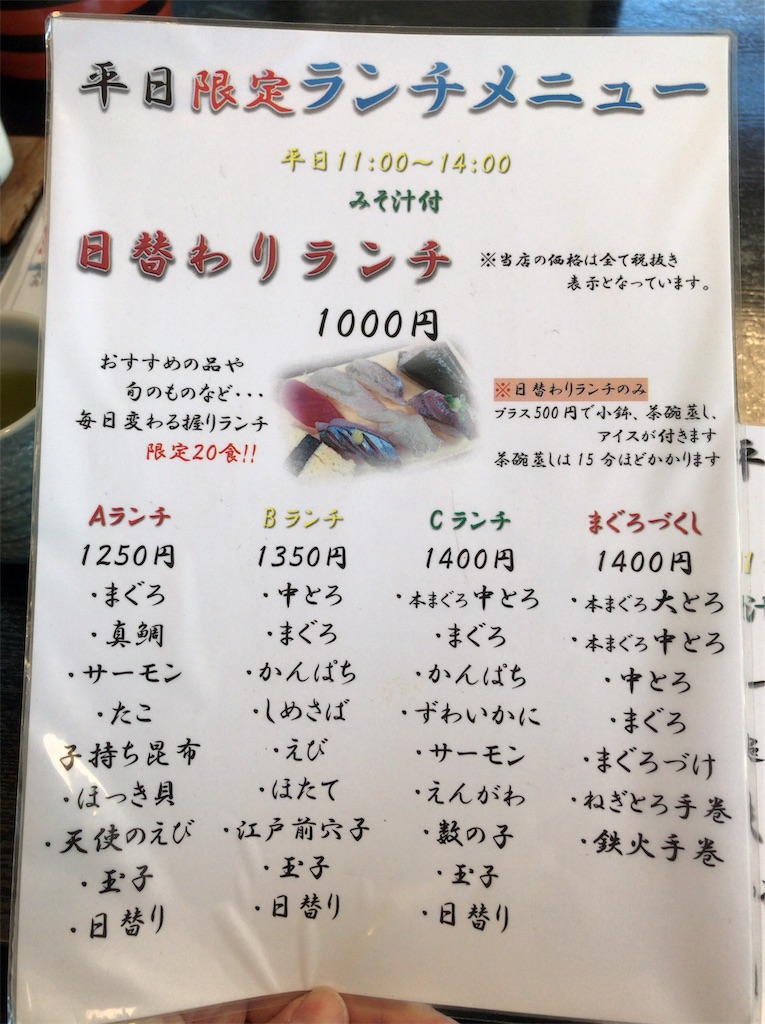 平日限定ランチメニュー
平日11:00～14:00
みそ汁付
日替わりランチ
※当店の価格は全て税抜き
表示となっています。
1000円
おすすめの品や
旬のものなど・・・
毎日変わる握りランチ
限定20食!!
※日替わりランチのみ
プラス500円で小鉢、茶碗蒸し、
アイスが付きます
茶碗蒸しは15分ほどかかります
Aランチ
1250円
・まぐろ
・真鯛
・サーモン
・たこ
子持ち昆布
・ほっき貝
・天使のえび
・玉子
・日替り
Bランチ
1350円
・中とろ
・まぐろ
・かんぱち
・しめさば
・えび
・ほたて
・江戸前穴子
・玉子
・日替り
Cランチ
1400円
・本まぐろ中とろ
・まぐろ
・かんぱち
・ずわいかに
・サーモン
・えんがわ
・数の子
・玉子
・日替り
まぐろづくし
1400円
・本まぐろ大とろ
・本まぐろ中とろ
・中とろ
・まぐろ
・まぐろづけ
・ねぎとろ手巻
・鉄火手巻
平
1
汁